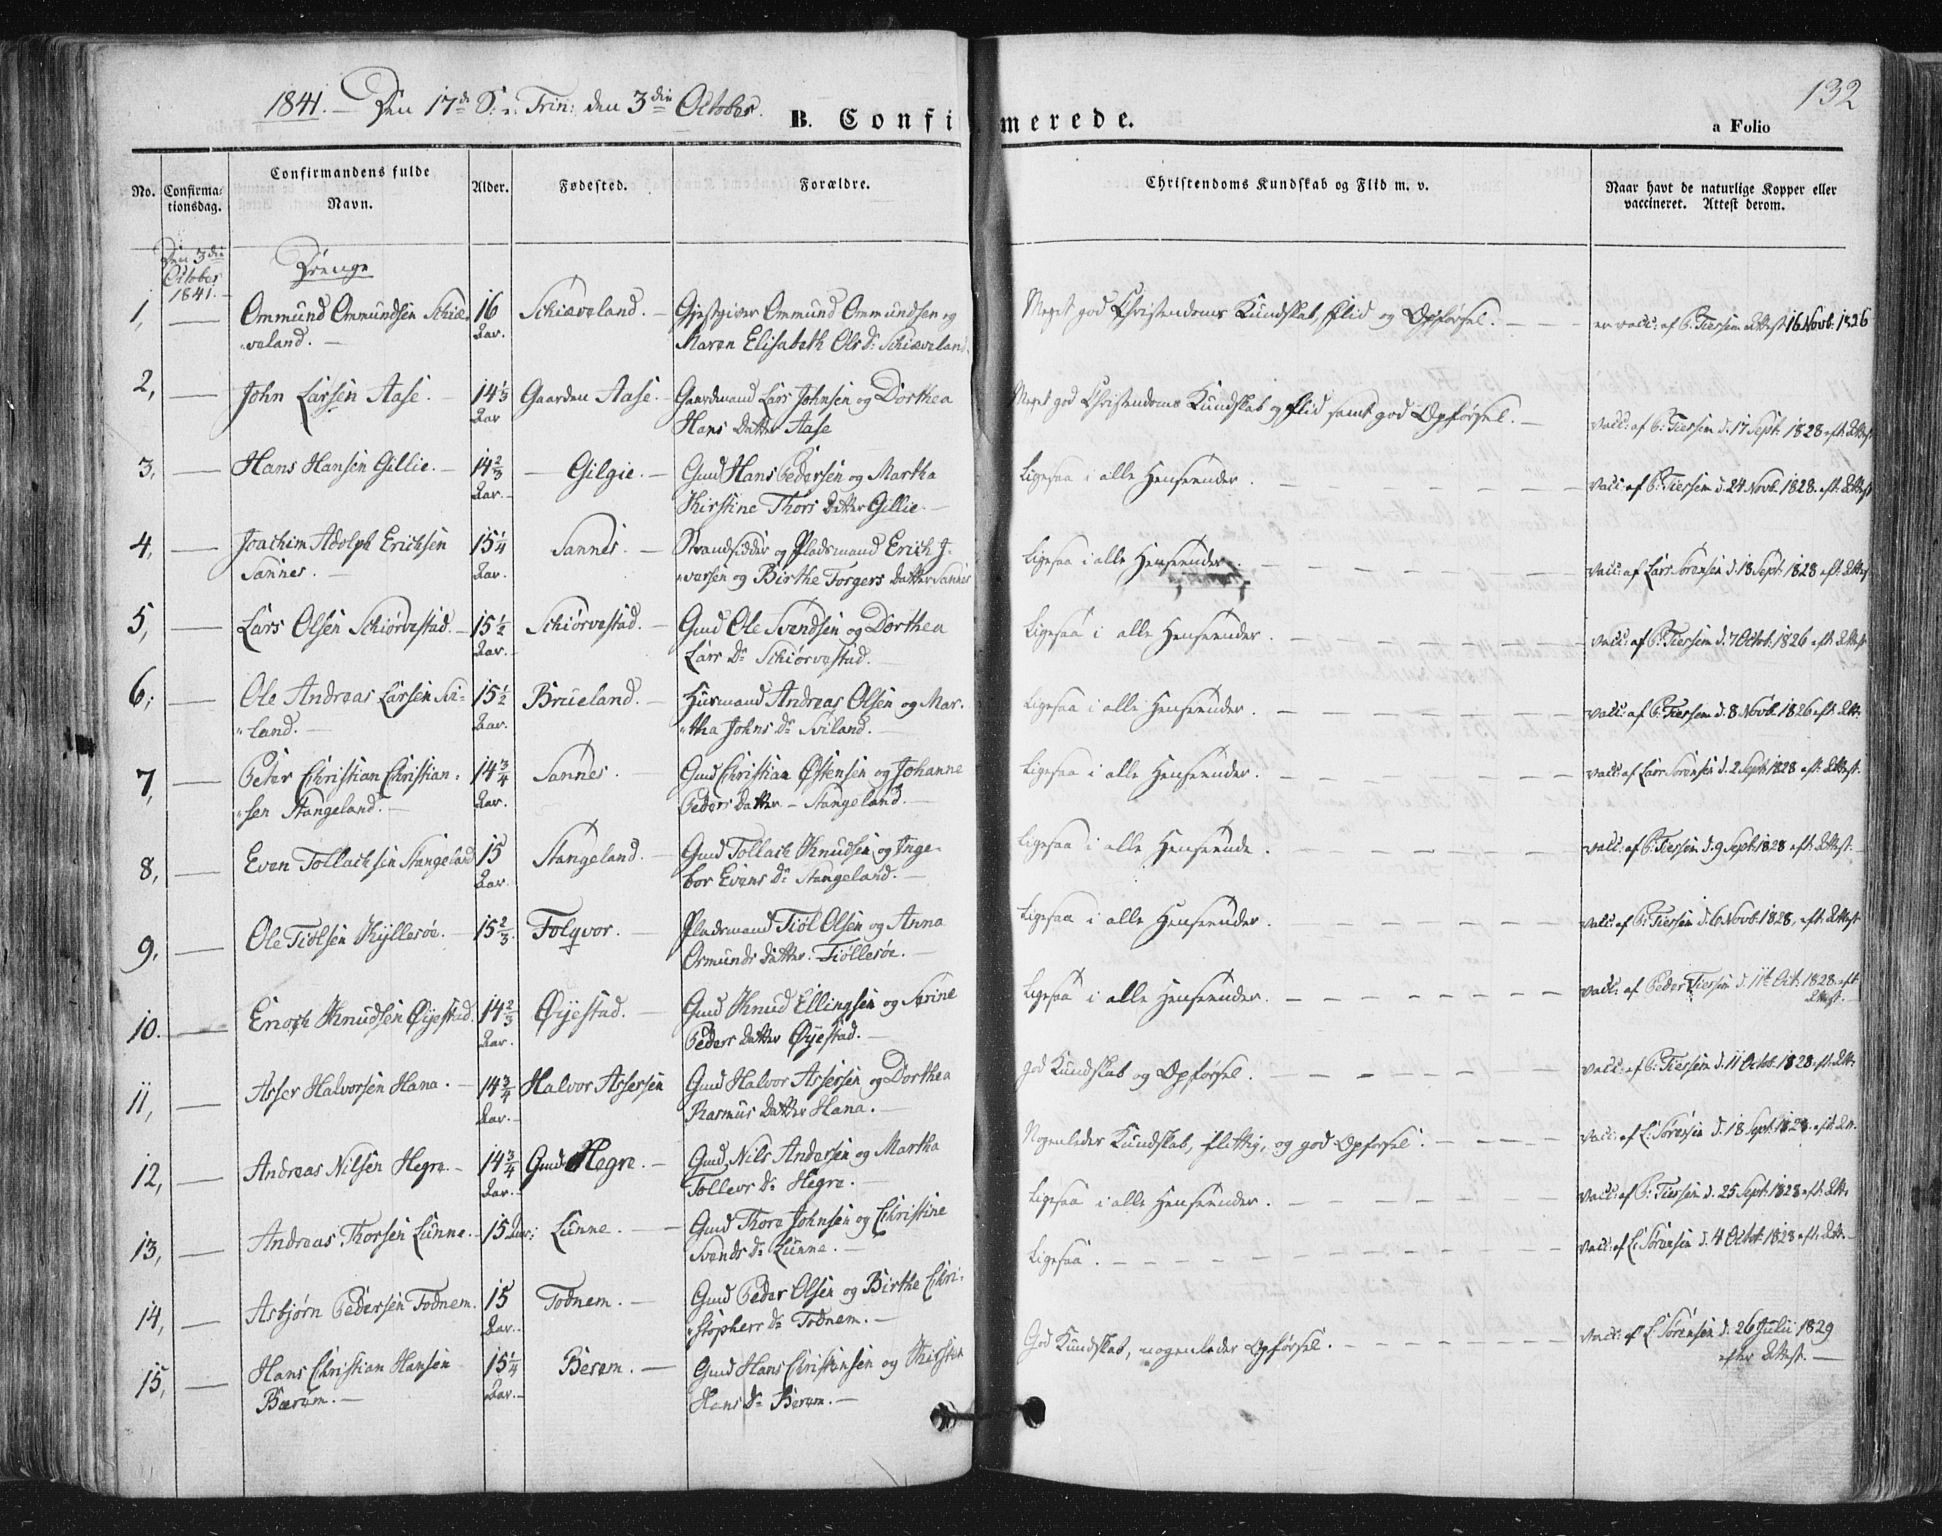 1841. – Den 17de S: e: Trin: den 3die October.
B. Confirmerede.
132
a Folio
No. Confirmationsdag. Confirmandens fulde Navn. Alder. Fødested. Forældre. Christendoms Kundskab og Flid m. v. Naar havt de naturlige Kopper eller vaccineret. Attest derom.
Den 3die October 1841. –
Drenge
1, — Ommund Ommundsen Schiæ- 16 Schiæveland. – Gjestgiver Ommund Ommundsen og Meget god Christendoms Kundskab, Flid og Opførsel. – er vacc: af P: Tiersen Attest 16 Novb. 1826
veland. – Aar. Maren Elisabeth Ols Dr Schiæveland
2, — John Larsen Aase. – 14 1/3 Gaarden Aase. – Gaardmand Lars Johnsen og Dorthea Meget god Christendoms Kundskab og Flid samt god Opførsel. – vacc: af P: Tiersen d. 17 Sept. 1828 eft: Attest
Aar Hans Datter Aase
3, — Hans Hansen Gillie. – 14 2/3 – Gilgie. – Gmd Hans Pedersen og Martha Ligesaa i alle Henseender. – vacc: af P: Tiersen d. 24 Novb. 1828. eft. Attest
Aar. – Kirstine Thors Datter Gillie. –
4, — Joachim Adolph Erichsen 15 1/4 Sannes. – Strandsidder og Pladsmand Erich J- Ligesaa i alle Henseender. – vacc: af Lars Sørensen d. 18 Sept. 1828 eft. Attest
Sannes. – Aar. versen og Birthe Torgers Datter Sannes
5, — Lars Olsen Schiørvestad. – 15 1/2 Schiørvestad. – Gmd Ole Svendsen og Dorthea Ligesaa i alle Henseender. – vacc: af P: Tiersen d. 7 Octob. 1826 eft: Attest
Aar. Lars Dr Schiørvestad. –
6, — Ole Andreas Larsen Svi- 15 1/2 Brueland. – Huusmand Andreas Olsen og Mar- Ligesaa i alle Henseender. – vacc: af P: Tiersen d. 8 Novb. 1826 eft. Att.
land. – Aar. tha Johns Dr Sviland. –
7, — Peter Christian Christian- 14 3/4 Sannes. Gmd Christian Østensen og Johanne Ligesaa i alle Henseender. – vacc: af Lars Sørensen d. 2 Sept. 1828 eft. Attest.
sen Stangeland. – Aar. Peders Datter – Stangeland. –
8, — Even Tollachsen Stangeland 15 Stangeland. – Gmd Tollach Knudsen og Inge- Ligesaa i alle Henseende. – vacc: af P: Tiersen d. 9 Sept. 1828 eft: Attest.
Aar. bor Evens Dr Stangeland. –
9, — Ole Tiølsen Kyllesøe. – 15 2/3. Folqvor. – Pladsmand Tiøl Olsen og Anna Ligesaa i alle Henseender. – vacc: af P: Tiersen d. 6 Novb. 1828, eft. Attest
Osmunds Datter Tiøllesøe. –
10. — Enoch Knudsen Øijestad. 14 2/3 Øijestad. – Gmd Knud Ellingsen og Serine Ligesaa i alle Henseender. – vacc: af Peder Tiersen d. 11te Oct. 1828. eft.
Aar. Peders Datter Øijestad. – Attest. –
11, — Asser Halvorsen Hana. – 14 3/4 Halvor Assersen Gmd Halvor Assersen og Dorthea god Kundskab og Opførsel. – vacc: af P: Tiersen d. 11 Octob. 1828. eft. Att.
Aar. – Rasmus Datter Hana. –
12, — Andreas Nilsen Hegre. – 14 3/4 Gmd Hegre. – Gmd. Nils Andersen og Martha Nogenledes Kundskab, flittig, og god Opførsel. – vacc: af L: Sørensen d. 18 Sept. 1828. eft. Att.
Aar. – Tollevs Dr Hegre. –
13, — Andreas Thorsen Lunne. – 15 Aar; Lunne. – Gmd Thore Johnsen og Christine Ligesaa i alle Henseender. – vacc: af P: Tiersen d. 25 Sept. 1828 eft. Att.
Svends Dr Lunne. –
14, — Asbjørn Pedersen Todnem. 15 Todnem. – Gmd Peder Olsen og Birthe Chri- Ligesaa. – vacc: af L: Sørensen d. 4 Octob. 1828 eft. Att. –
Aar. – stophers Dr Todnem. –
15, — Hans Christian Hansen 15 1/4 Berem. – Gmd Hans Christensen og Kirsten God Kundskab, nogenledes Opførsel. – vacc: af L. Sørensen d. 26 Julii 1829
Bærum. – Aar. – Hans Dr Berem. – efter Attest. –